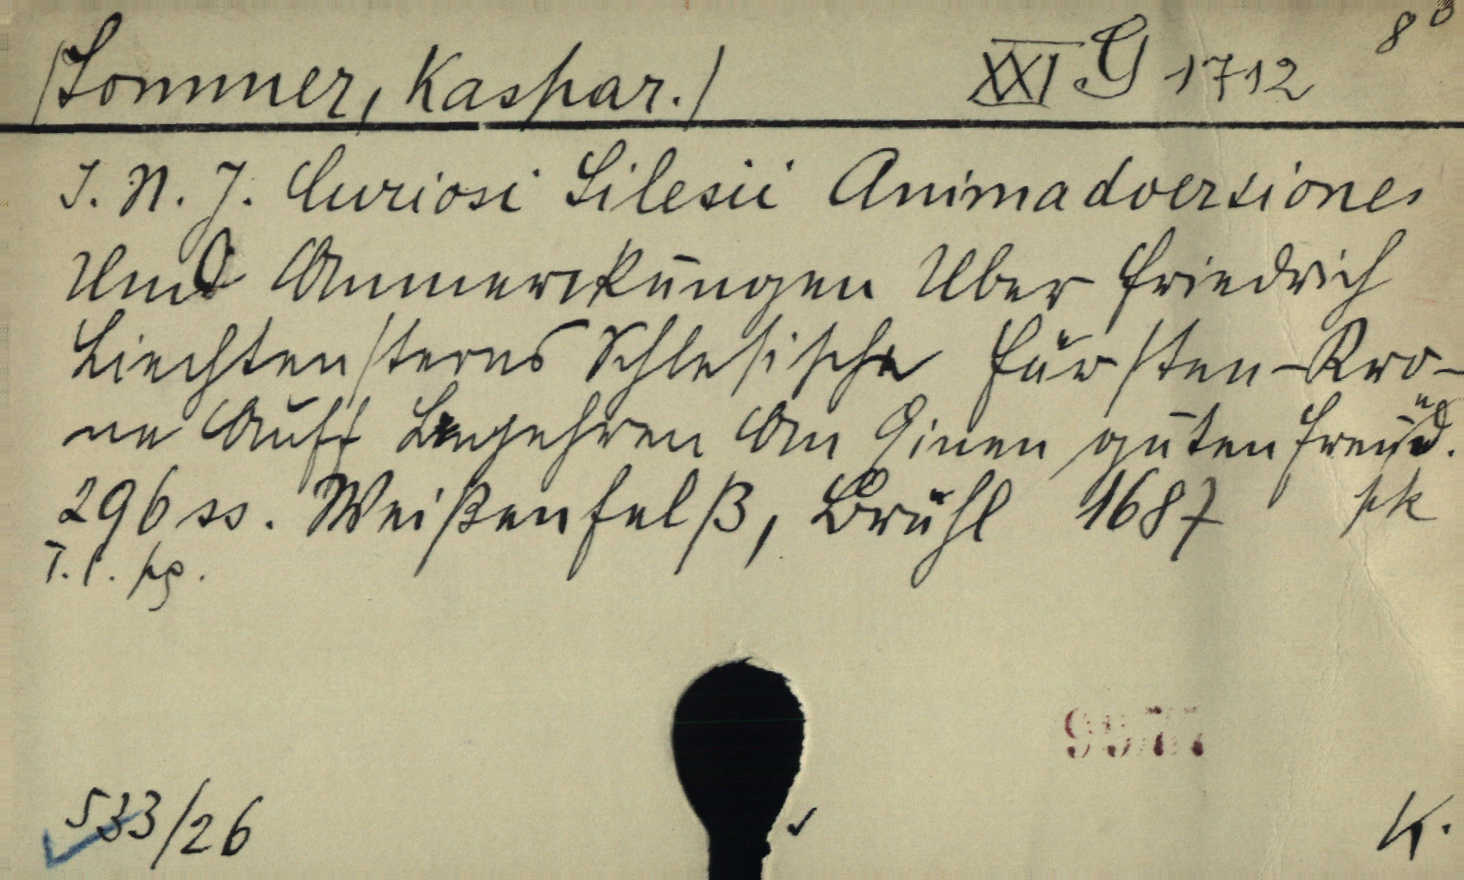 (Sommer, Kaspar.) XXI G 1712 8°
I. N. J. Curiosi Silesii Animadversiones
Und Anmerckungen Uber Friedrich
Liechtensterns Schlesische Fürsten-Kro-
ne Auff Begehren An Einen guten Freund.
296 ss. Weißenfelß, Brühl 1687 pk
T. l. pg.
533/26 K.